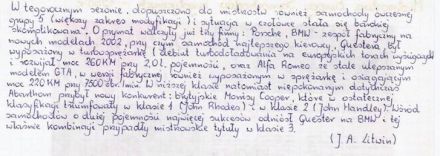 W tegorocznym sezonie, dopuszczono do mistrostw również samochody ówczesnej
grupy 5 (większy zakres modyfikacji) i sytuacja w czołówce stała się bardziej
skomplikowana. O prymat walczyły już trzy firmy: Porsche, BMW - zespół fabryczny na
nowych modelach 2002, przy czym samochód najlepszego kierowcy, Questera był
wyposażony w turbosprężarkę (debiut turbodoładowania na europejskich torach wyścigowych)
i rozwijał moc 260 KM przy 2,0 l. pojemności, oraz Alfa Romeo ze stale ulepszanym
modelem GTA, w wersji fabrycznej również wyposażonym w sprężarkę i osiągającym
moc 220 KM przy 7500 obr./min. W niższej klasie natomiast niepokonanym dotychczas
Abarthom przybył nowy konkurent: brytyjskie Morrisy Cooper, które w ostatecznej
klasyfikacji triumfowały w klasie 1 (John Rhodes) i w klasie 2 (John Handley). Wśród
samochodów o dużej pojemności najwięcej sukcesów odniósł Quester na BMW i tej
właśnie kombinacji przypadły mistrzowskie tytuły w klasie 3.
(J. A. Litwin)